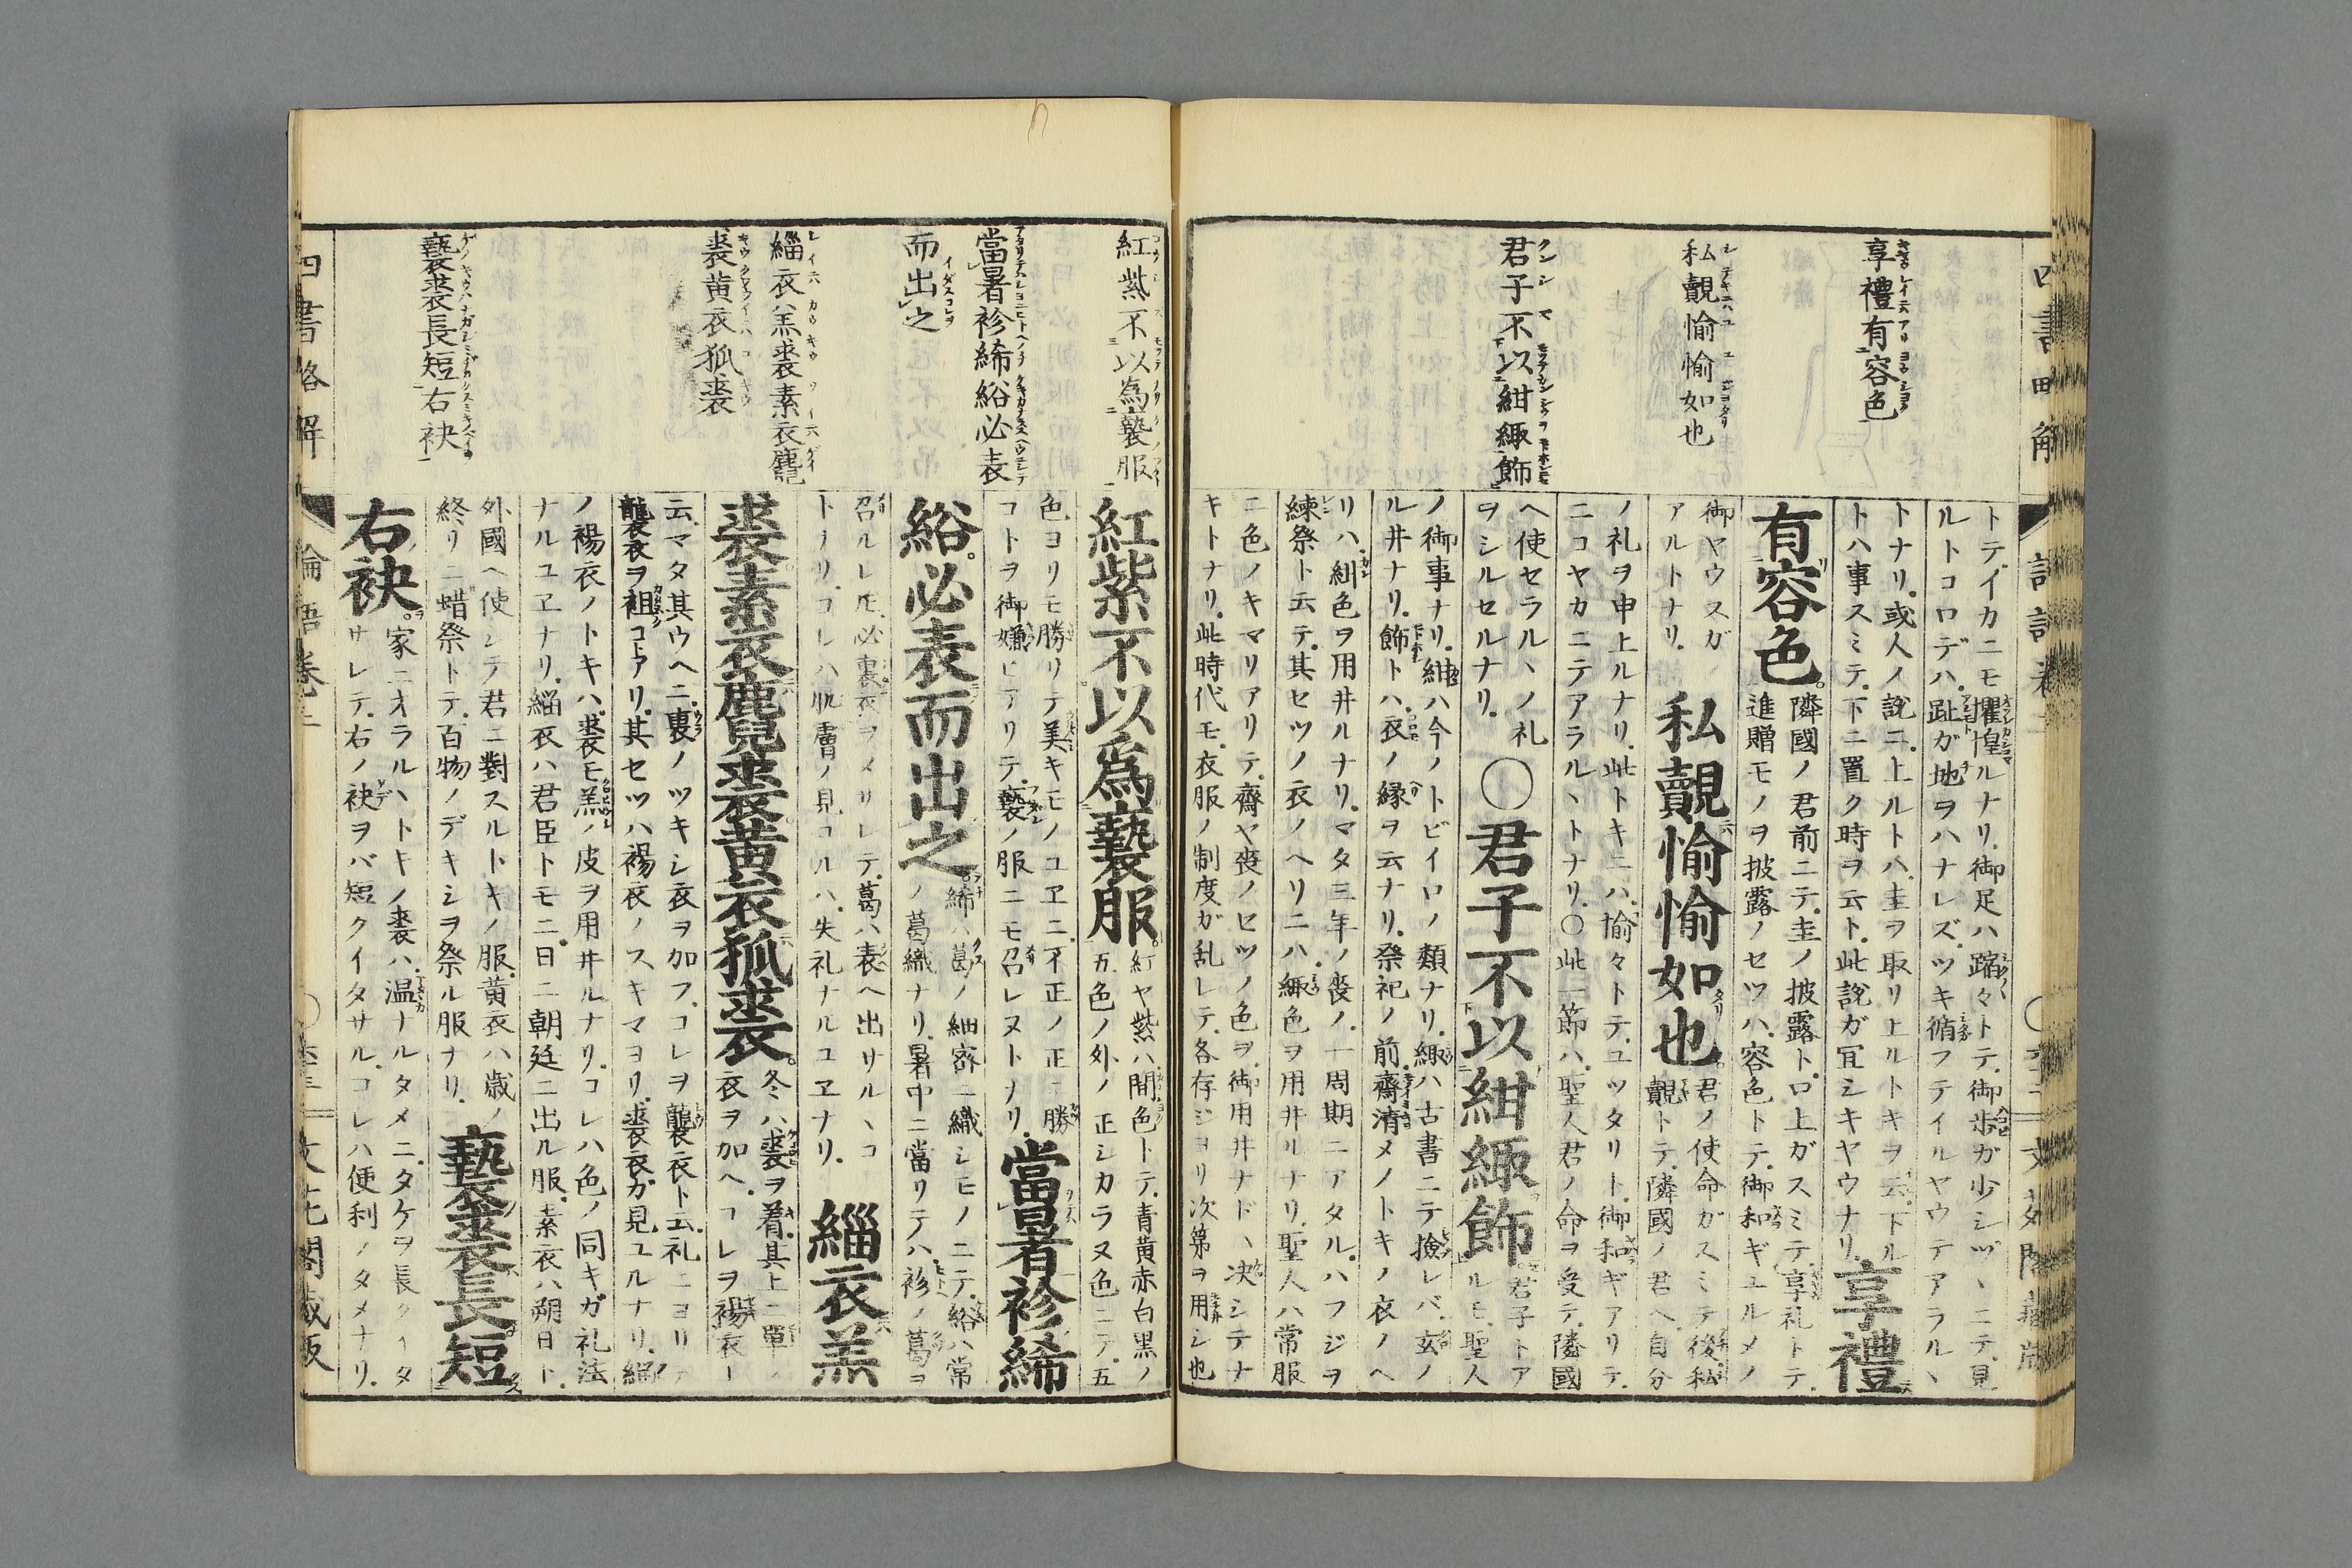 享禮有容色
私覿愉愉如也
君子不以紺緅飾
トテイカニモ懼惶ルナリ御足ハ蹜々トテ御歩ガ少シヅヽニテ見
ルトコロデハ趾ガ地ヲハナレズツキ循フテイルヤウテアラルヽ
トナリ或人ノ説ニ上ルトハ圭ヲ取リ上ルトキヲ云下ル
トハ事スミテ下ニ置ク時ヲ云ト此説ガ宜シキヤウナリ享禮
有容色
隣國ノ君前ニテ圭ノ披露ト口上ガスミテ享礼トテ
進贈モノヲ披露ノセツハ容色トテ御和ギユルメノ
御ヤウスガ
アルトナリ
私覿愉愉如也
君ノ使命ガスミテ後私
覿トテ隣國ノ君ヘ自分
ノ礼ヲ申上ルナリ此トキニハ愉々トテユツタリト御和ギアリテ
ニコヤカニテアラルヽトナリ○此一節ハ聖人君ノ命ヲ受テ隣國
ヘ使セラルヽノ礼
ヲシルセルナリ
○君子不以紺緅飾
君子トア
ルモ聖人
ノ御事ナリ紺ハ今ノトビイロノ類ナリ緅ハ古書ニテ撿レバ玄ノ
ル井ナリ飾トハ衣ノ縁ヲ云ナリ祭祀ノ前齋清メノトキノ衣ノヘ
リハ紺色ヲ用井ルナリマタ三年ノ喪ノ一周期ニアタルハフジヲ
練祭ト云テ其セツノ衣ノヘリニハ緅色ヲ用井ルナリ聖人ハ常服
ニ色ノキマリアリテ齋ヤ喪ノセツノ色ヲ御用井ナドヽ决シテナ
キトナリ此時代モ衣服ノ制度ガ乱レテ各存ジヨリ次第ヲ用シ也
紅紫不以為褻服
當暑袗絺綌必表
而出之
緇衣ハ羔裘素衣麑
裘黄衣狐裘
褻裘長短右袂
紅紫不以爲褻服
紅ヤ紫ハ間色トテ青黄赤白黒ノ
五色ノ外ノ正シカラヌ色ニテ五
色ヨリモ勝リテ美キモノユヱニ不正ノ正ニ勝
コトヲ御嫌ヒアリテ褻ノ服ニモ召レヌトナリ
當暑袗絺
綌必表而出之
絺ハ葛ノ細密ニ織シモノニテ綌ハ常
ノ葛織ナリ暑中ニ當リテハ袗ノ葛ヲ
召ルレ𪜈必裏衣ヲメサレテ葛ハ表ヘ出サルヽコ
トナリコレハ肌膚ノ見コルハ失礼ナルユヱナリ
緇衣羔
裘素衣麑裘黄衣狐裘
冬ハ裘ヲ着其上ニ單ノ
衣ヲ加ヘコレヲ裼衣ト
云マタ其ウヘニ裏ノツキシ衣ヲ加フコレヲ襲衣ト云礼ニヨリテ
襲衣ヲ袒コトアリ其セツハ裼衣ノスキマヨリ裘衣ガ見ユルナリ緇
ノ裼衣ノトキハ裘モ羔ノ皮ヲ用井ルナリコレハ色ノ同キガ礼法
ナルユヱナリ緇衣ハ君臣トモニ日ニ朝廷ニ出ル服素衣ハ朔日ト
外國ヘ使シテ君ニ對スルトキノ服黄衣ハ歳ノ
終リニ蜡祭トテ百物ノデキシヲ祭ル服ナリ
褻裘長短
右袂
家ニオラルヽトキノ裘ハ温ナルタメニタケヲ長クイタ
サレテ右ノ袂ヲバ短クイタサルコレハ便利ノタメナリ
四書略解
論語巻二
文花閣蔵版